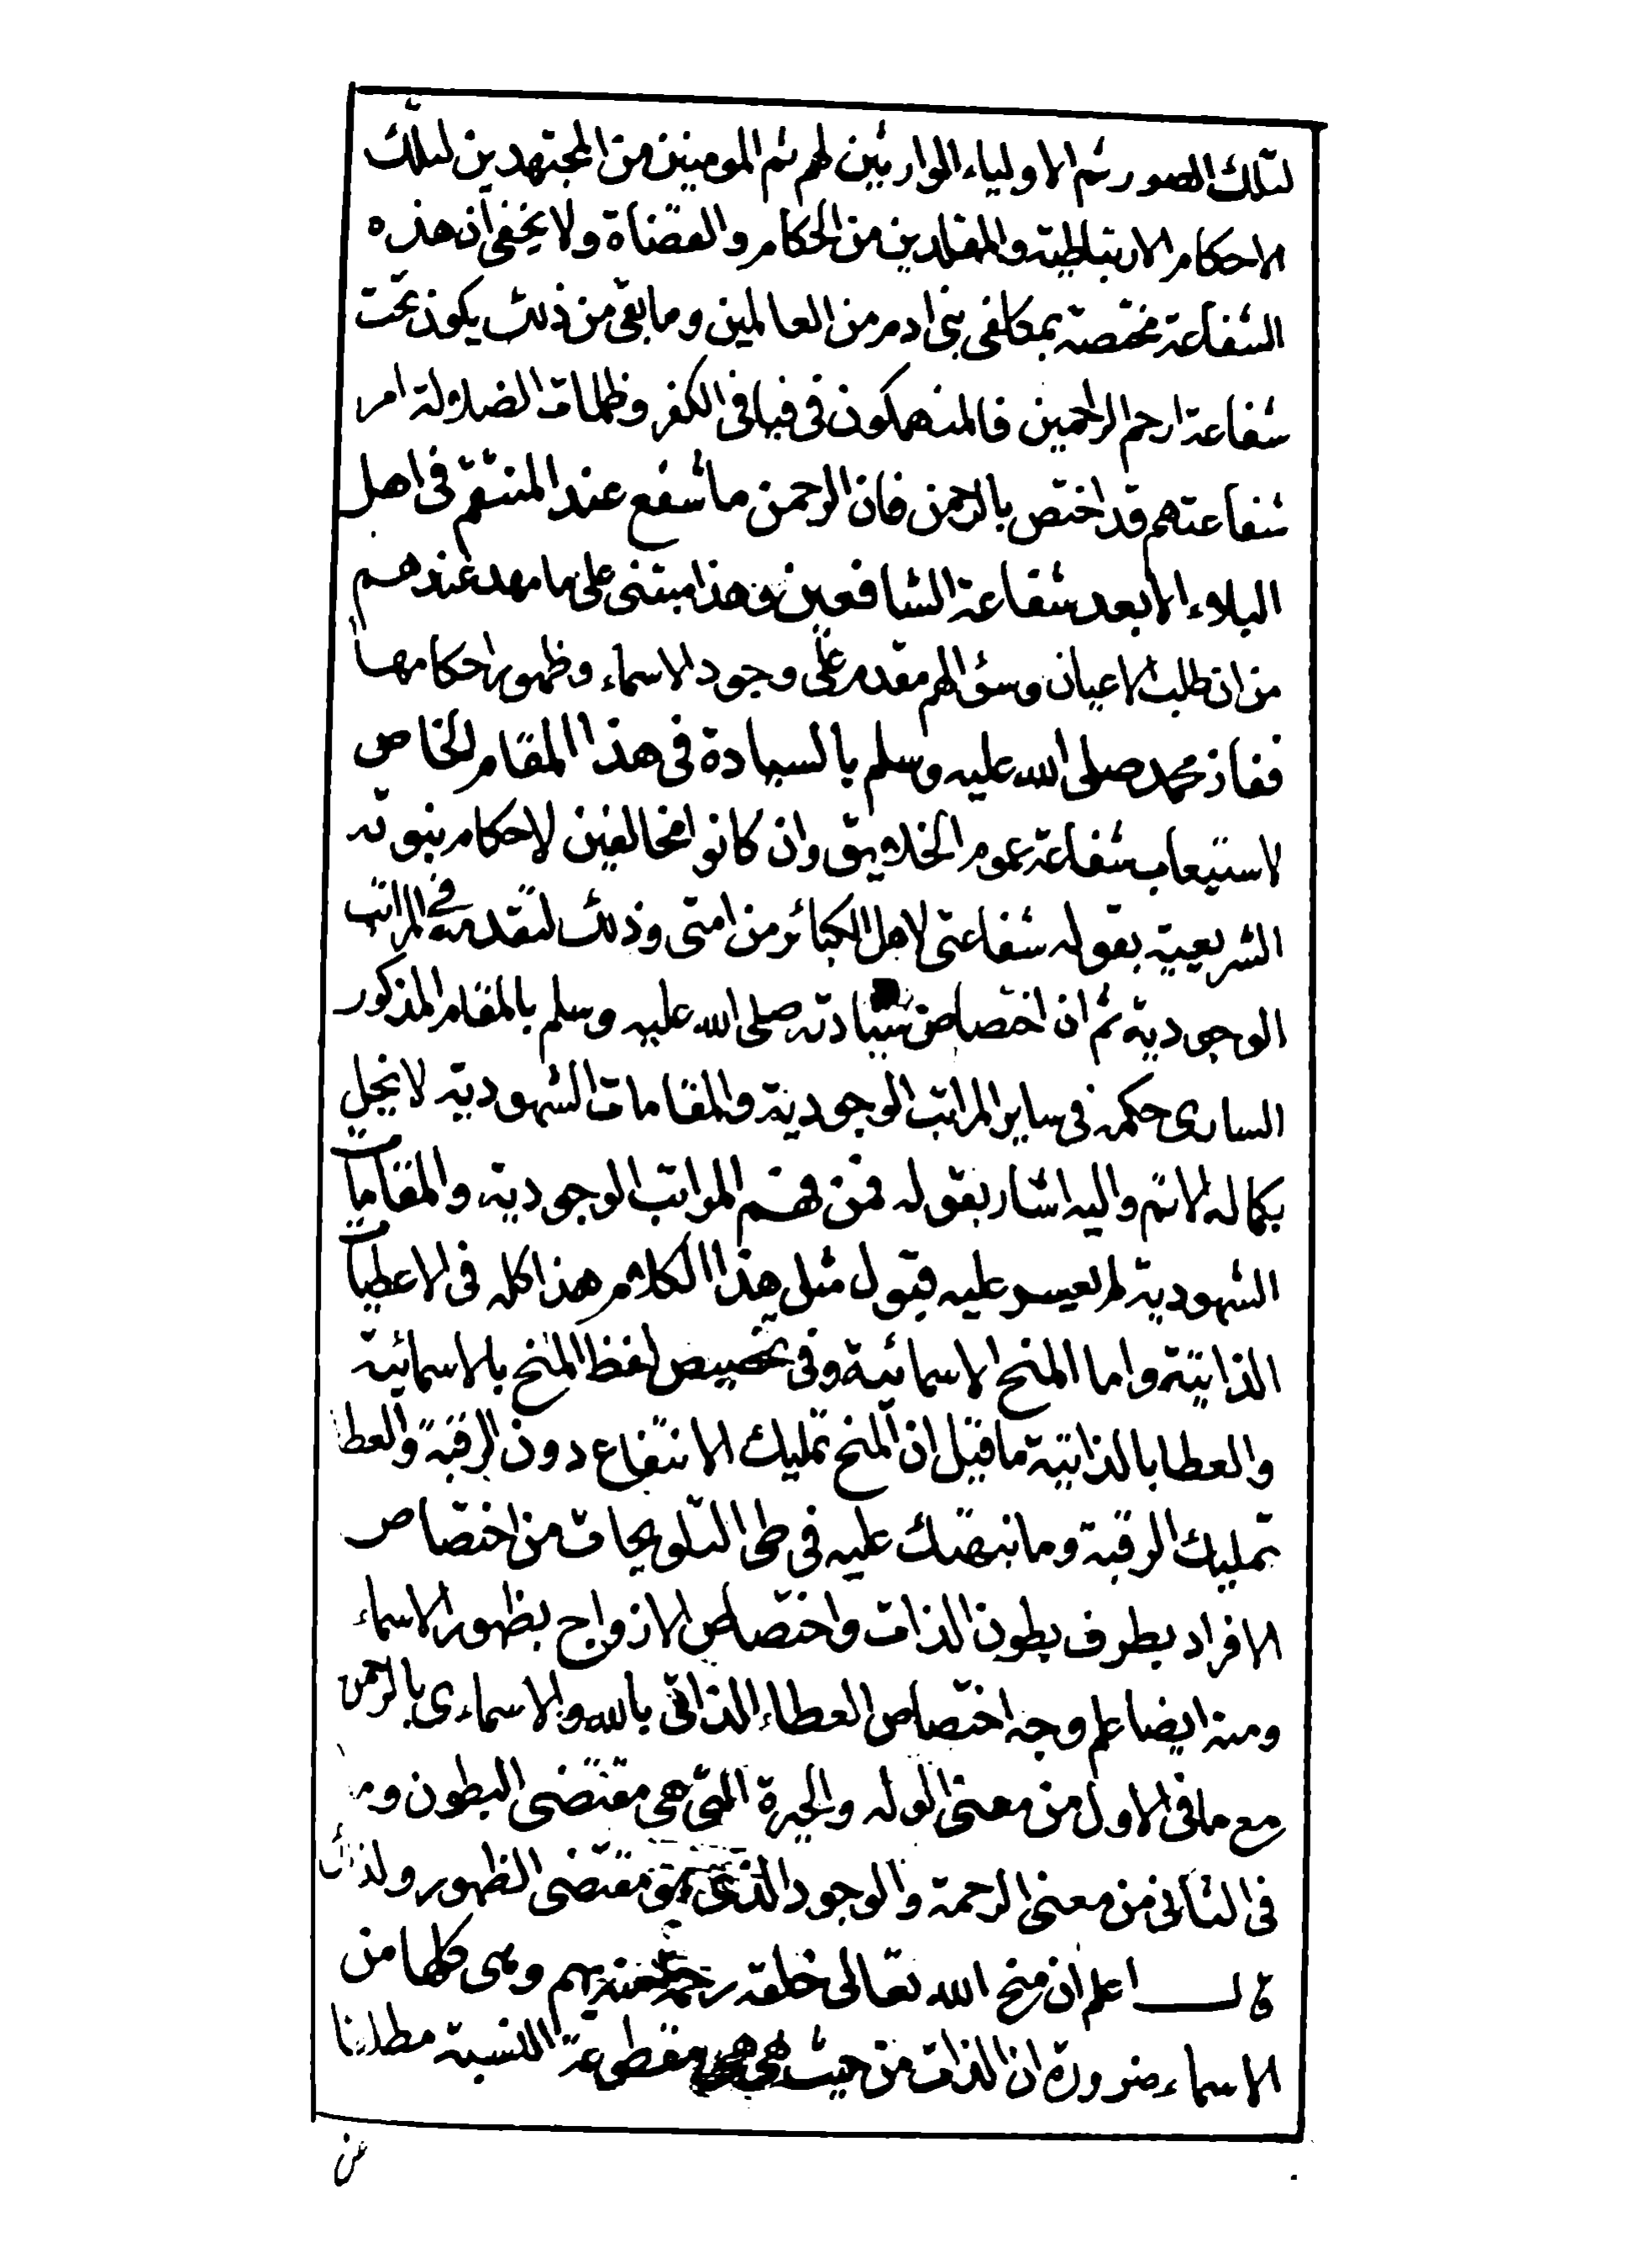 لتلك الصور ثم الاولياء الوارثين لهم ثم المومنين من المجتهدين لتلك
الاحكام الارتباطية والمقلدين من الحكام والقضاة ولا يخفى ان هذه
الشفاعة مختصة بمكلفى بنى ادم من العالمين وما بقى من ذلك يكون تحت
شفاعة ارحم الراحمين فالمنهمكون فى فيافى الكفر وظلمات الضلالة امر
شفاعتهم قد اختص بالرحمن فان الرحمن ما شفع عند المنتقم فى اهل
البلاء الا بعد شفاعة الشافعين وهذا مبتنى على ما مهد عندهم
من ان طلب الاعيان وسؤالهم مقدم على وجود الاسماء وظهور احكامها
ففاز محمد صلى الله عليه وسلم بالسيادة فى هذا المقام الخاص
لاستيعاب شفاعة عموم الخلايق وان كانوا مخالفين لاحكام نبوته
الشريعية بقوله شفاعتى لاهل الكبائر من امتى وذلك لتقدمه فى المراتب
الوجودية ثم ان اختصاص سيادته صلى الله عليه وسلم بالمقام المذكور
السارى حكمه فى ساير المراتب الوجودية والمقامات الشهودية لا يخل
بكماله الاتم واليه اشار بقوله فمن فهم المراتب الوجودية والمقامات
الشهودية لم يعسر عليه قبول مثل هذا الكلام هذا كله فى الاعطيات
الذاتية واما المنح الاسمائية وفى تخصيص لفظ المنح بالاسمائية
والعطايا بالذاتية ما قيل ان المنح تمليك الانتفاع دون الرقبة والعطا
تمليك الرقبة وما نبهتك عليه فى طى التلويحات من اختصاص
الافراد بطرف بطون الذات واختصاص الازواج بظهور الاسماء
ومنه ايضا علم وجه اختصاص العطاء الذاتى بالله والاسماءى بالرحمن
مع ما فى الاول من معنى الوله والحيرة التى هى مقتضى البطون وما
فى الثانى من معنى الرحمة والوجود الذى هو مقتضى الظهور ولذلك
قال اعلم ان منح الله تعالى خلقه رحمة منه بهم وهى كلها من
الاسماء ضرورة ان الذات من حيث هى هى مقطوعة النسبة مطلقا
من